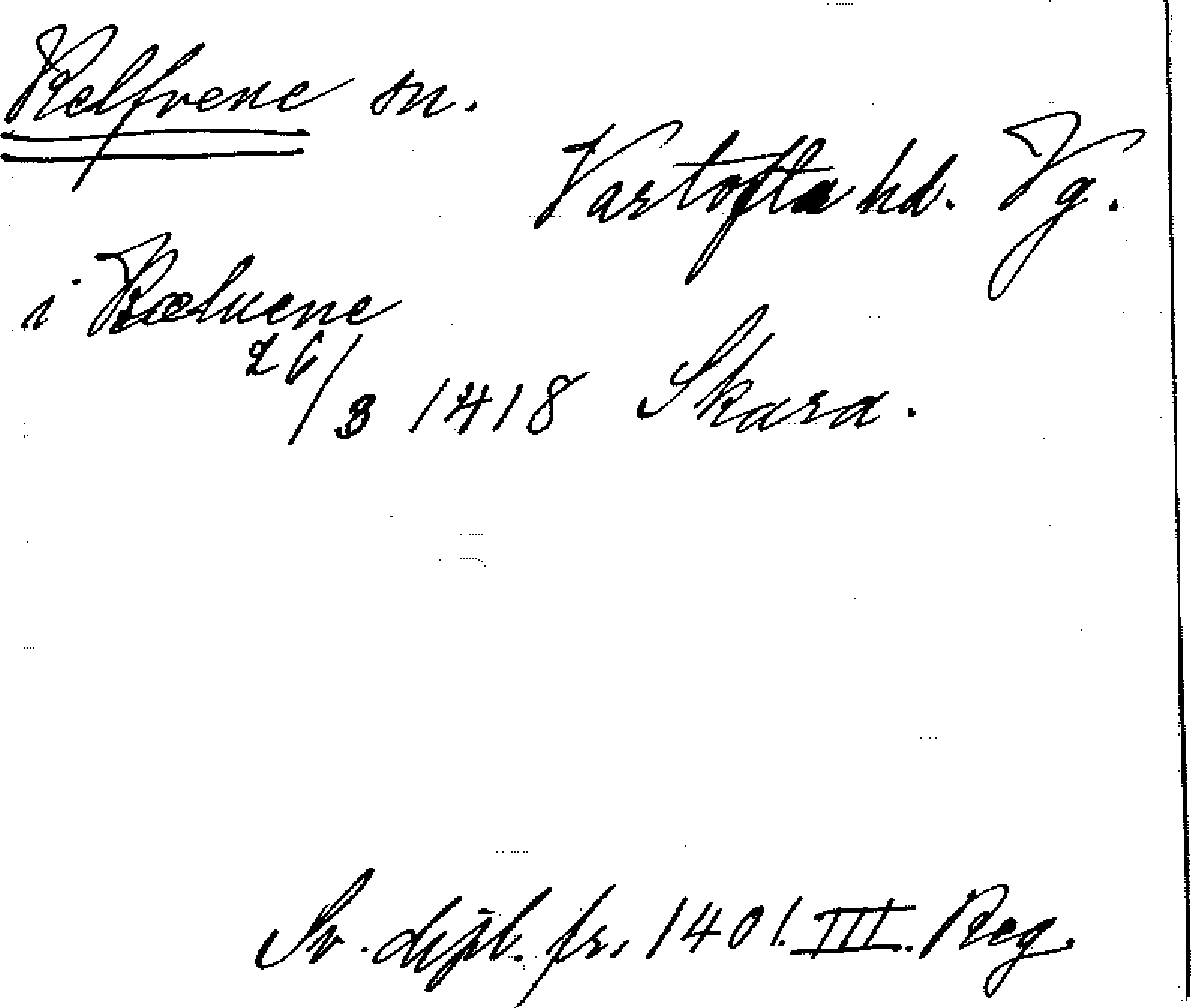 Kelfvene sn.
Vartofta hd. Vg.
i Kæluene
26/3 1418 Skara.
Sv. dipl. fr. 1401. III. Reg.